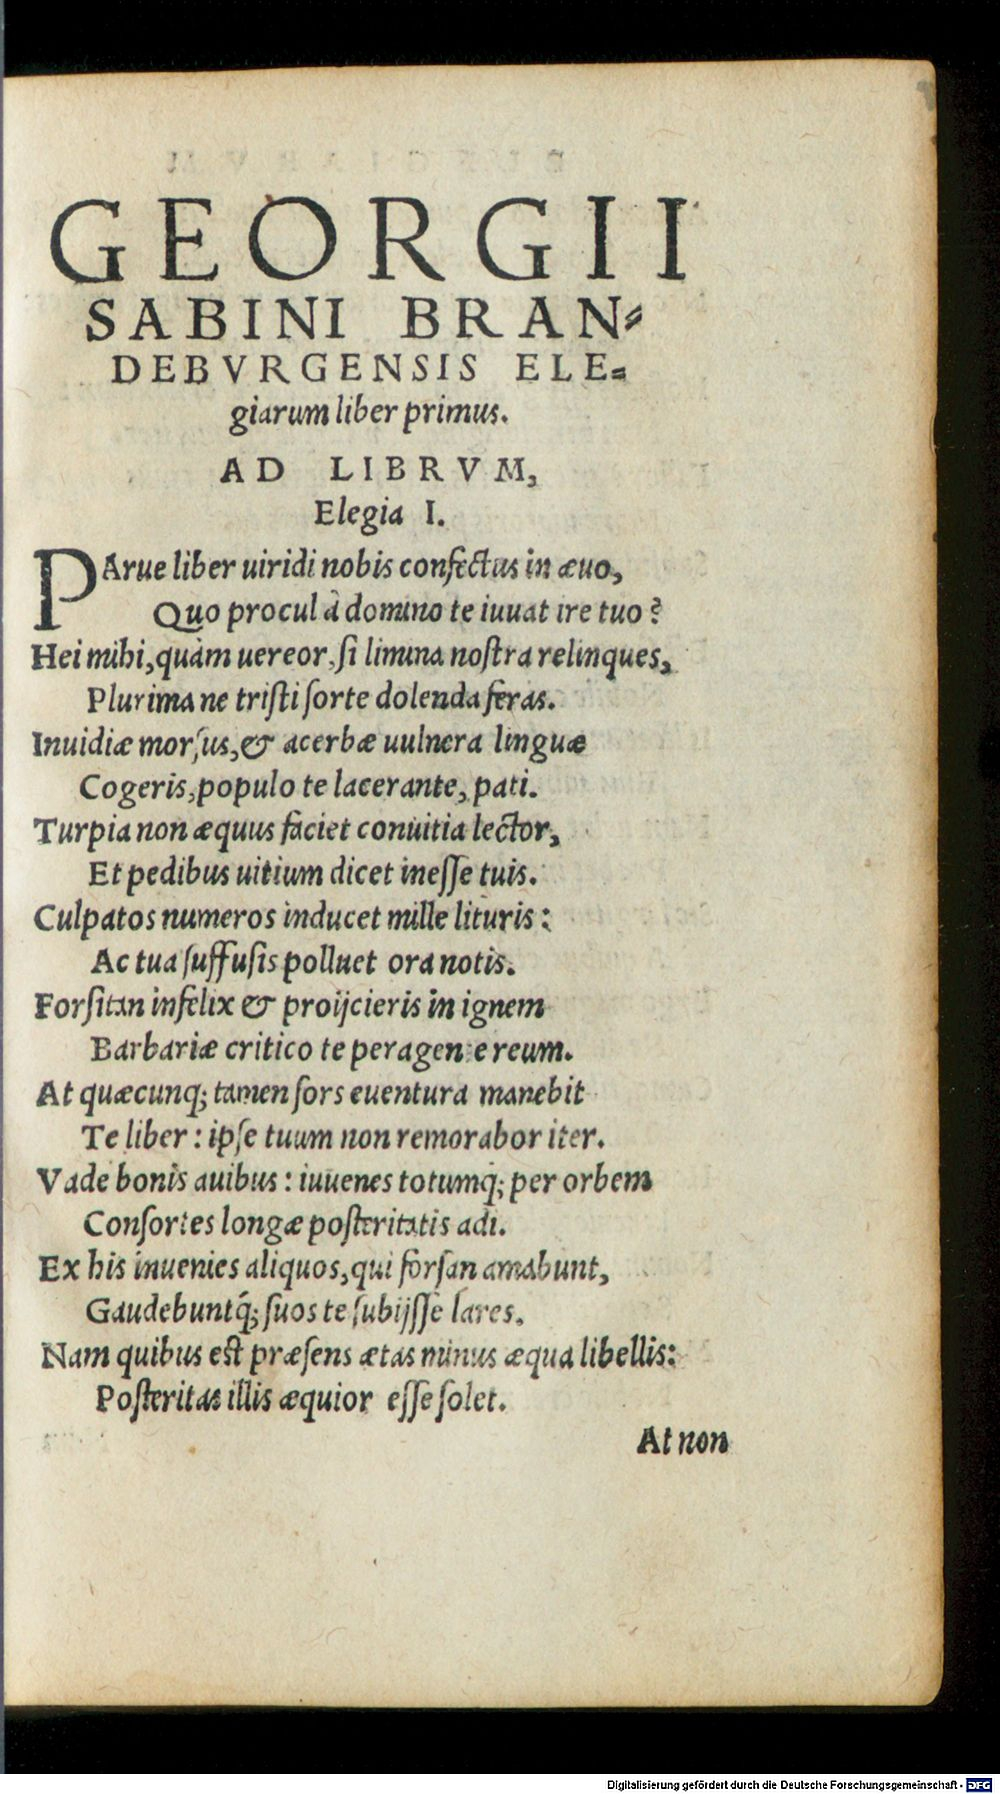 GEORGII
SABINI BRAN⸗
DEBVRGENSIS ELE⸗
giarum liber primus.
AD LIBRVM,
Elegia I.
PArue liber uiridi nobis confectus in æuo,
Quo procul à domino te iuuat ire tuo?
Hei mihi, quàm uereor, ſi limina noſtra relinques,
Plurima ne triſti ſorte dolenda feras.
Inuidiæ morſus, & acerbæ uulnera linguæ
Cogeris, populo te lacerante, pati.
Turpia non æquus faciet conuitia lector,
Et pedibus uitium dicet ineſſe tuis.
Culpatos numeros inducet mille lituris:
Ac tua ſuffuſis polluet ora notis.
Forſitan infelix & proijcieris in ignem
Barbariæ critico te peragente reum.
At quæcunq; tamen ſors euentura manebit
Te liber: ipſe tuum non remorabor iter.
Vade bonis auibus: iuuenes totumq; per orbem
Conſortes longæ poſteritatis adi.
Ex his inuenies aliquos, qui forſan amabunt,
Gaudebuntq́; ſuos te ſubijſſe lares.
Nam quibus est præſens ætas minus æqua libellis:
Poſteritas illis æquior eſſe ſolet.
At non
Digitalisierung gefördert durch die Deutsche Forschungsgemeinschaft - DFG